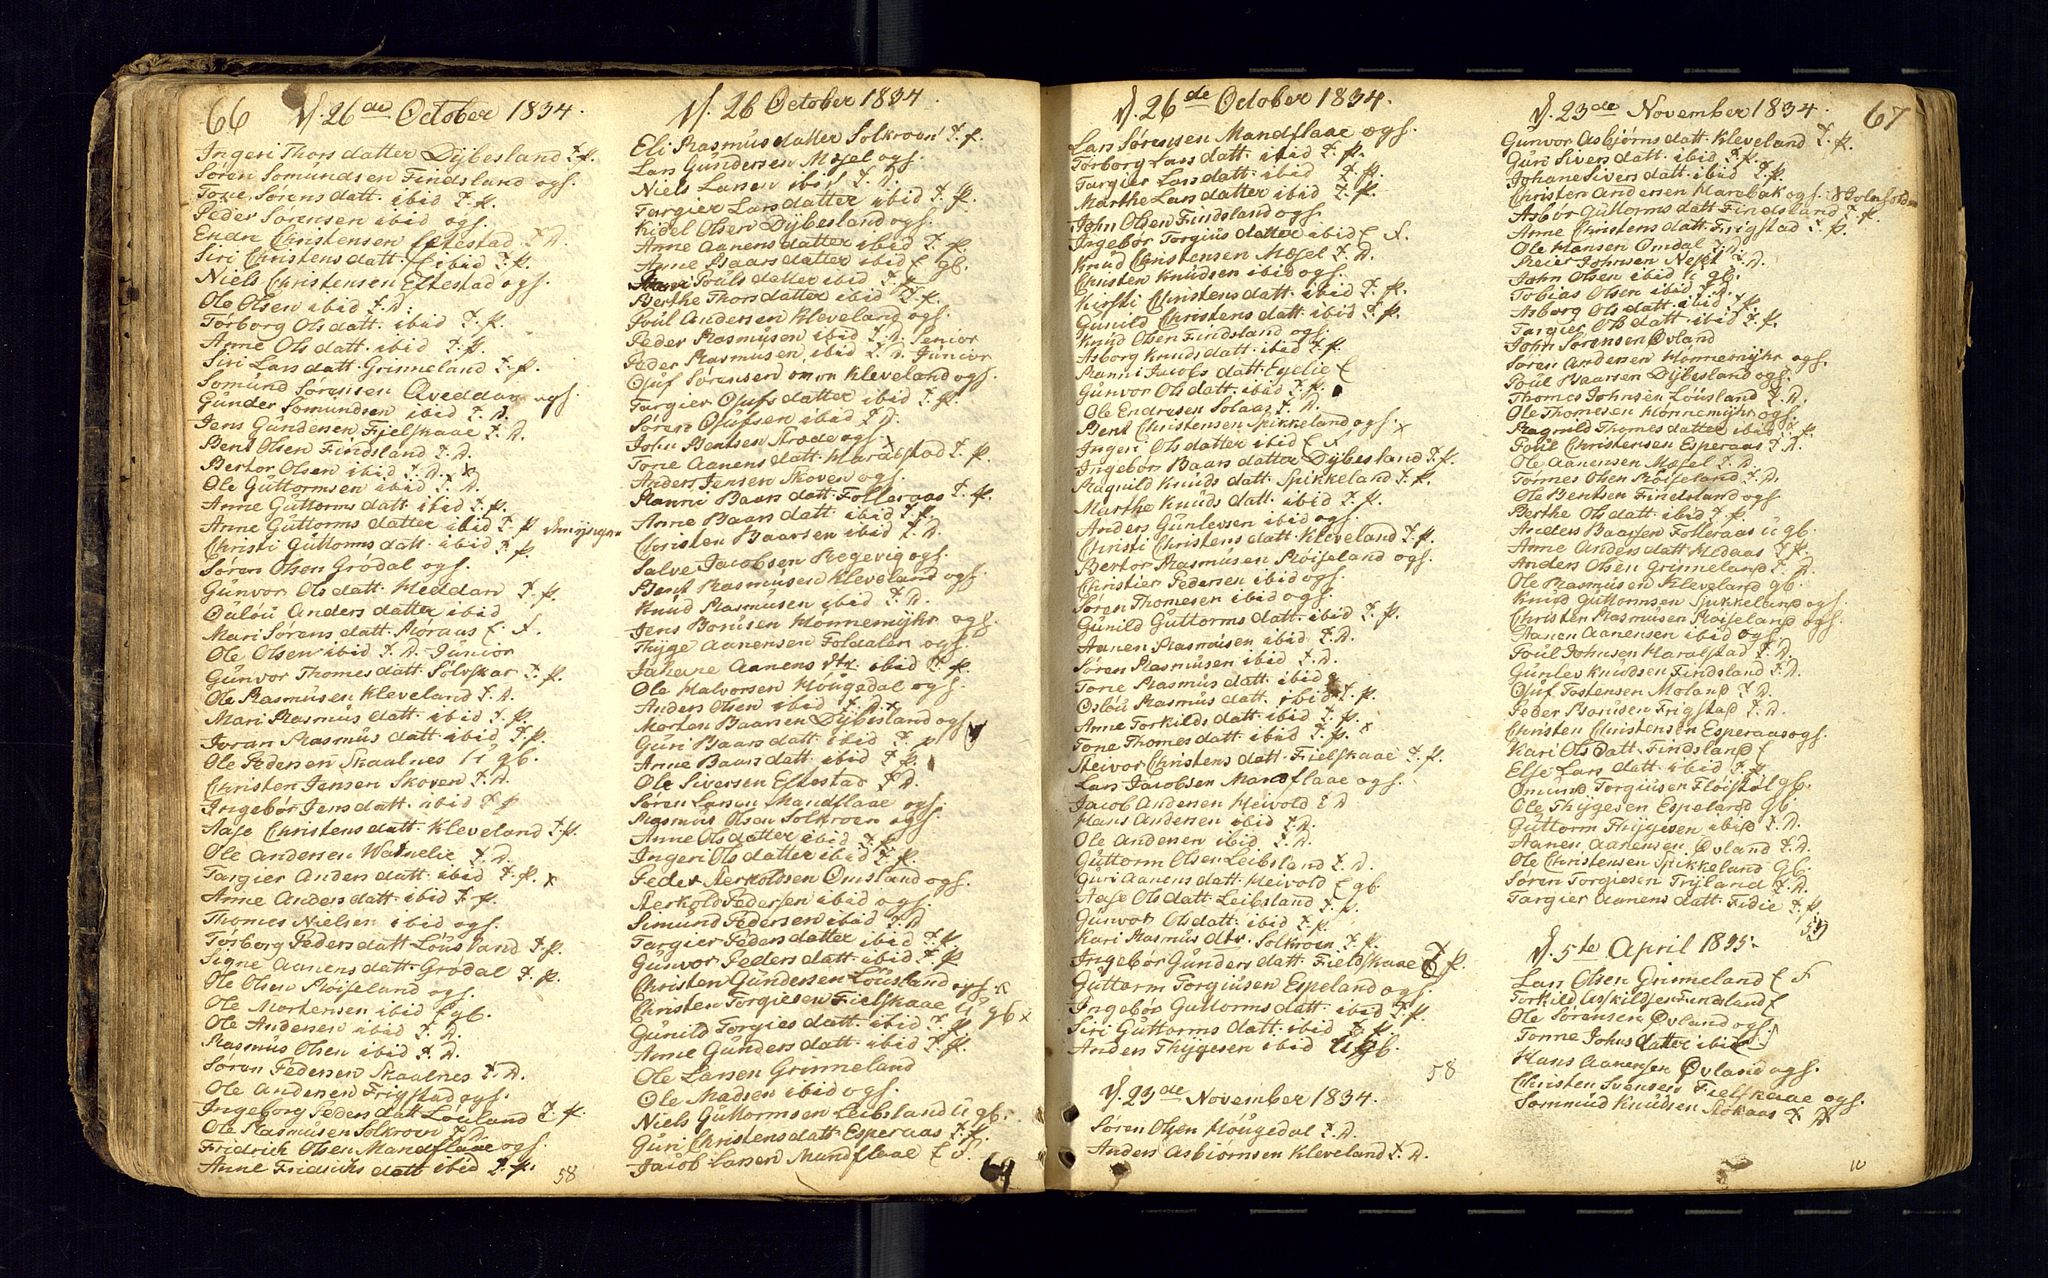 66
D. 26de October 1834.
Ingeri Thorsdatter Dÿbesland T. P.
Søren Somundsen Findsland ogs.
Tone Sørensdatt. ibid T. P.
Peder Sørensen ibid ogs.
Endre Christensen Eftestad T. D.
Siri Christensdatt. ibid T. P.
Niels Christensen Eftestad ogs.
Ole Olsen ibid T. D.
Torborg Olsdatt. ibid T. P.
Anne Olsdatt. ibid T. P.
Siri Larsdatt. Grimeland T. P.
Somund Sørensen Qveddan ogs.
Gunder Somundsen ibid T. D.
Jens Gundersen Fielskaae T. D.
Bent Olsen Findsland T. D.
Bertor Olsen ibid T. D. x
Ole Guttormsen ibid T. D.
Anne Guttormsdatt. ibid T. P.
Anne Guttormsdatter ibid T. P.
Christi Guttormsdatt. ibid T. P.
Søren Olsen Grødal ogs.
Gunvor Olsdatt. Heddan T. P.
Oulou Andersdatter ibid
Mari Sørensdatt. Røraas
Ole Olsen ibid T. D. Junior
Gunvor Thomesdatt. Sølvskar T. P.
Ole Rasmusen Kleveland T. D.
Mari Rasmusdatt. ibid T. P.
Joran Rasmusdatt. ibid T. P.
Ole Pedersen Skaalnes U gb.
Christen Jensen Skoven T. D.
Ingebor Jensdatt. ibid T. P.
Aase Christensdatt. Kleveland T. P.
Ole Andersen Watnelie T. D.
Targier Andersdatt. ibid T. P. x
Anne Andersdatt. ibid T. P.
Thomes Nielsen ibid ogs.
Torborg Pedersdatt. Lousland T. P.
Signe Aanensdatt. Grødal T. P.
Ole Olsen Røiseland ogs.
Ole Mortensen ibid gb.
Ole Andersen ibid T. D.
Rasmus Olsen ibid T. D.
Søren Pedersen Skaalnes T. D.
Ole Andersen Frigstad ogs.
Ingeborg Pedersdatt. Lousland T. P.
Ole Rasmusen Solkroen
Fridrich Olsen Mandflaae ogs.
Anne Fridrichsdatt. ibid T. P.
58
D. 26 October 1834.
Eli Rasmusdatter Solkroen T. P.
Lars Gundersen Mosel ogs.
Niels Larsen ibid T. D.
Targier Larsdatter ibid T. P.
Kidel Olsen Dÿbesland ogs.
Anne Aanensdatter ibid T. P.
Anne Baarsdatter ibid gb.
Poulsdatter ibid T. P.
Berthe Thorsdatter ibid T. P.
Poul Andersen Kleveland ogs.
Peder Rasmusen ibid T. D. Senior
Peder Rasmusen ibid T. D. Junior
Oluf Sørensen Kleveland ogs.
Targier Olufsdatter ibid T. P.
Søren Olufsen ibid T. D.
John Bentsen Strøde ogs. x
Tone Aanensdatt. Haralstad T. P.
Anders Jensen Skoven ogs.
Ranni Baarsdatt. Folleraas T. P.
Anne Baarsdatt. ibid T. P.
Christen Baarsen ibid T. D.
Salve Jacobsen Regevig ogs.
Bent Rasmusen Kleveland ogs.
Knud Rasmusen ibid T. D.
Jens Bonusen Honnemÿhr ogs.
Thÿge Aanensen Foldalen ogs.
Johane Aanens dtr. ibid T. P.
Ole Halvorsen Hougedal ogs.
Anders Olsen ibid T. D. x
Morten Baarsen Dÿbesland ogs.
Guri Baarsdatt. ibid T. P.
Anne Baarsdatt. ibid T. P.
Ole Siversen Eftestad T. D.
Søren Larsen Mandflaae ogs.
Rasmus Olsen Solkroen ogs.
Anne Olsdatter ibid T. P.
Ingeri Olsdatter ibid T. P.
Peder Herkoldsen Omsland ogs.
Herkold Pedersen ibid ogs.
Simund Pedersen ibid T. D.
Targier Pedersdatter ibid T. P.
Gunvor Pedersdatter ibid T. P.
Christen Gundersen Lousland ogs. x
Christen Torgiesen Fielskaae U gb. x
Gunild Torgiesdatt. ibid T. P.
Anne Gundersdatt. ibid T. P.
Ole Larsen Grimeland
Ole Madsen ibid ogs.
Niels Guttormsen Leibsland U gb.
Guri Christensdatt. Esperaas T. P.
Jacob Larsen Mandflaae
D. 26de October 1834.
Lars Sørensen Mandflaae ogs.
Torborg Larsdatt. ibid T. P.
Targier Larsdatt. ibid T. P.
Marthe Larsdatter ibid T. P.
John Olsen Findsland ogs.
Ingebor Torgiusdatter ibid
Knud Christensen Mosel T. D.
Christen Knudsen ibid ogs.
Kirsti Christensdatt. ibid T. P.
Gunild Christensdatt. ibid T. P.
Knud Olsen Findsland ogs.
Asborg Knudsdatt. ibid T. P.
Ranni Jacobsdatt. Egelie
Gunvor Olsdatt. ibid T. P.
Ole Endresen Solaas T. D.
Bent Christensen Spikkeland ogs. x
Ingeri Olsdatter ibid
Ingebor Baarsdatter Dÿbesland T. P.
Ragnild Knudsdatt. Spikkeland T. P.
Marthe Knudsdatt. ibid T. P.
Anders Gunlevsen ibid ogs.
Christi Christensdatt. Kleveland T. P.
Bertor Rasmusen Røiseland ogs.
Christier Pedersen ibid ogs.
Søren Thomesen ibid ogs.
Gunild Guttormsdatt. ibid T. P.
Aanen Rasmusen ibid T. D.
Søren Rasmusen ibid T. D.
Tone Rasmusdatt. ibid
Oslou Rasmusdatt. ibid T. P.
Anne Torkildsdatt. ibid T. P.
Tone Thomesdatt. ibid T. P. x
Steivor Christensdatt. Fielskaae T. P.
Lars Jacobsen Mandflaae ogs.
Jacob Andersen Heivold T. D.
Hans Andersen ibid T. D.
Ole Andersen ibid T. D.
Guttorm Olsen Leibsland T. D.
Guri Aanensdatt. Heivold gb.
Aase Olsdatt. Leibsland T. P.
Gunvor Olsdatt. ibid T. P.
Kari Rasmus dtr. Solkroen T. P.
Ingebor Gundersdatt. Fielskaae T. P.
Guttorm Torgiusen Espeland ogs.
Ingebor Guttormsdatt. ibid T. P.
Siri Guttormsdatt. ibid T. P.
Anders Thÿgesen ibid U gb.
58
D. 23de November 1834.
Søren Olsen Hougedal T. D.
Anders Asbiørnsen Kleveland T. D.
D. 23de November 1834.
67
Gunvor Asbjørnsdatt. Kleveland T. P.
Guri Siversdatt. ibid T. P.
Johane Siversdatt. ibid T. P.
Christen Andersen Harebak ogs.
Asbor Guttormsdatt. Findsland T. P.
Anne Christensdatt. Frigstad T. P.
Ole Hansen Omdal T. D.
Reier Johnsen Neset T. D.
John Olsen ibid U gb.
Tobias Olsen ibid T. D.
Asborg Olsdatt. ibid T. P.
Targier Olsdatt. ibid T. P.
John Sørensen Øvland
Søren Andersen Honnemÿhr ogs.
Poul Baarsen Dÿbesland ogs.
Thomes Johnsen Lousland T. D.
Ole Thomesen Honnemÿhr ogs.
Ragnild Thomesdatter ibid T. P.
Poul Christensen Esperaas T. D.
Ole Aanensen Mosel T. D.
Tønnes Olsen Røiseland T. D.
Ole Bentsen Findsland ogs.
Berthe Olsdatt. ibid T. P.
Anders Baarsen Folleraas U gb.
Anne Andersdatt. Hedaas T. P.
Anders Olsen Grimeland T. D.
Ole Rasmusen Kleveland gb.
Knud Guttormsen Spikkeland ogs.
Christen Rasmusen Røiseland ogs.
Aanen Aanensen ibid ogs.
Poul Johnsen Haralstad T. D.
Gunlev Knudsen Findsland T. D.
Oluf Tostensen Moland T. D.
Peder Bonusen Frigstad T. D.
Christen Christensen Esperaas ogs.
Kari Olsdatt. Findsland
Else Larsdatt. ibid T. P.
Omund Torgiusen Fløistøl gb.
Ole Thÿgesen Espeland gb.
Guttorm Thÿgesen ibid T. D.
Aanen Aanensen Øvland T. D.
Ole Christensen Spikkeland gb.
Søren Torgiesen Trÿland T. D.
Targier Aanensdatt. Fidie T. P.
D. 5te April 1835.
Lars Olsen Grimeland
Torkild Findsland
Ole Sørensen Øvland ogs.
Tonne Johnsdatter ibid
Hans Aanensen Øvland ogs.
Christen Svensen Fielskaae ogs.
Sommund Knudsen Røkaas T. D.
10